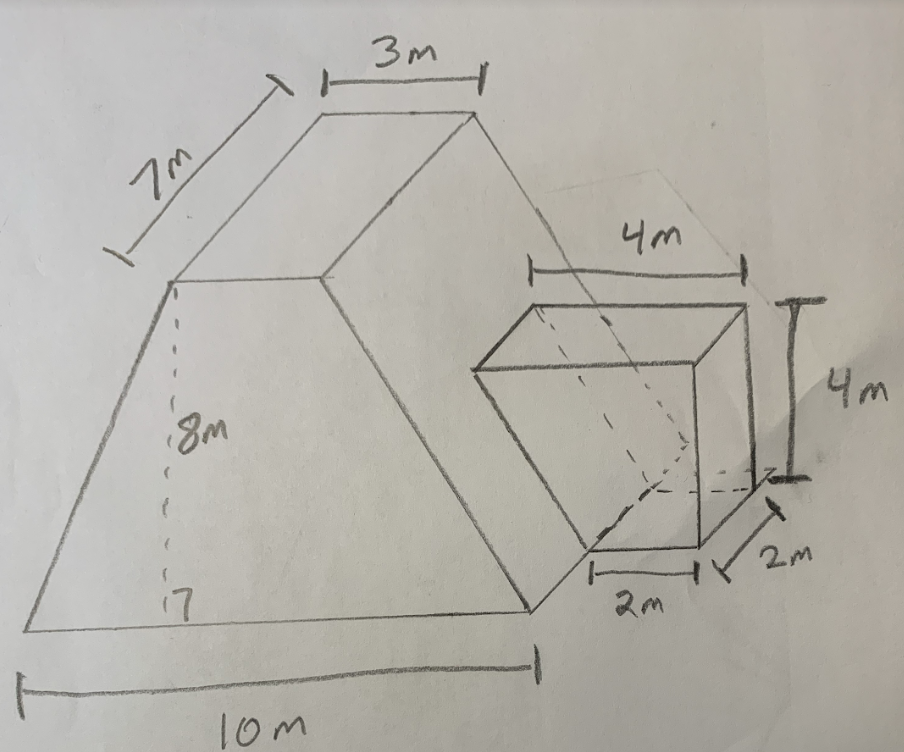 3m
7m
4m
8m
4m
2m
2m
10m